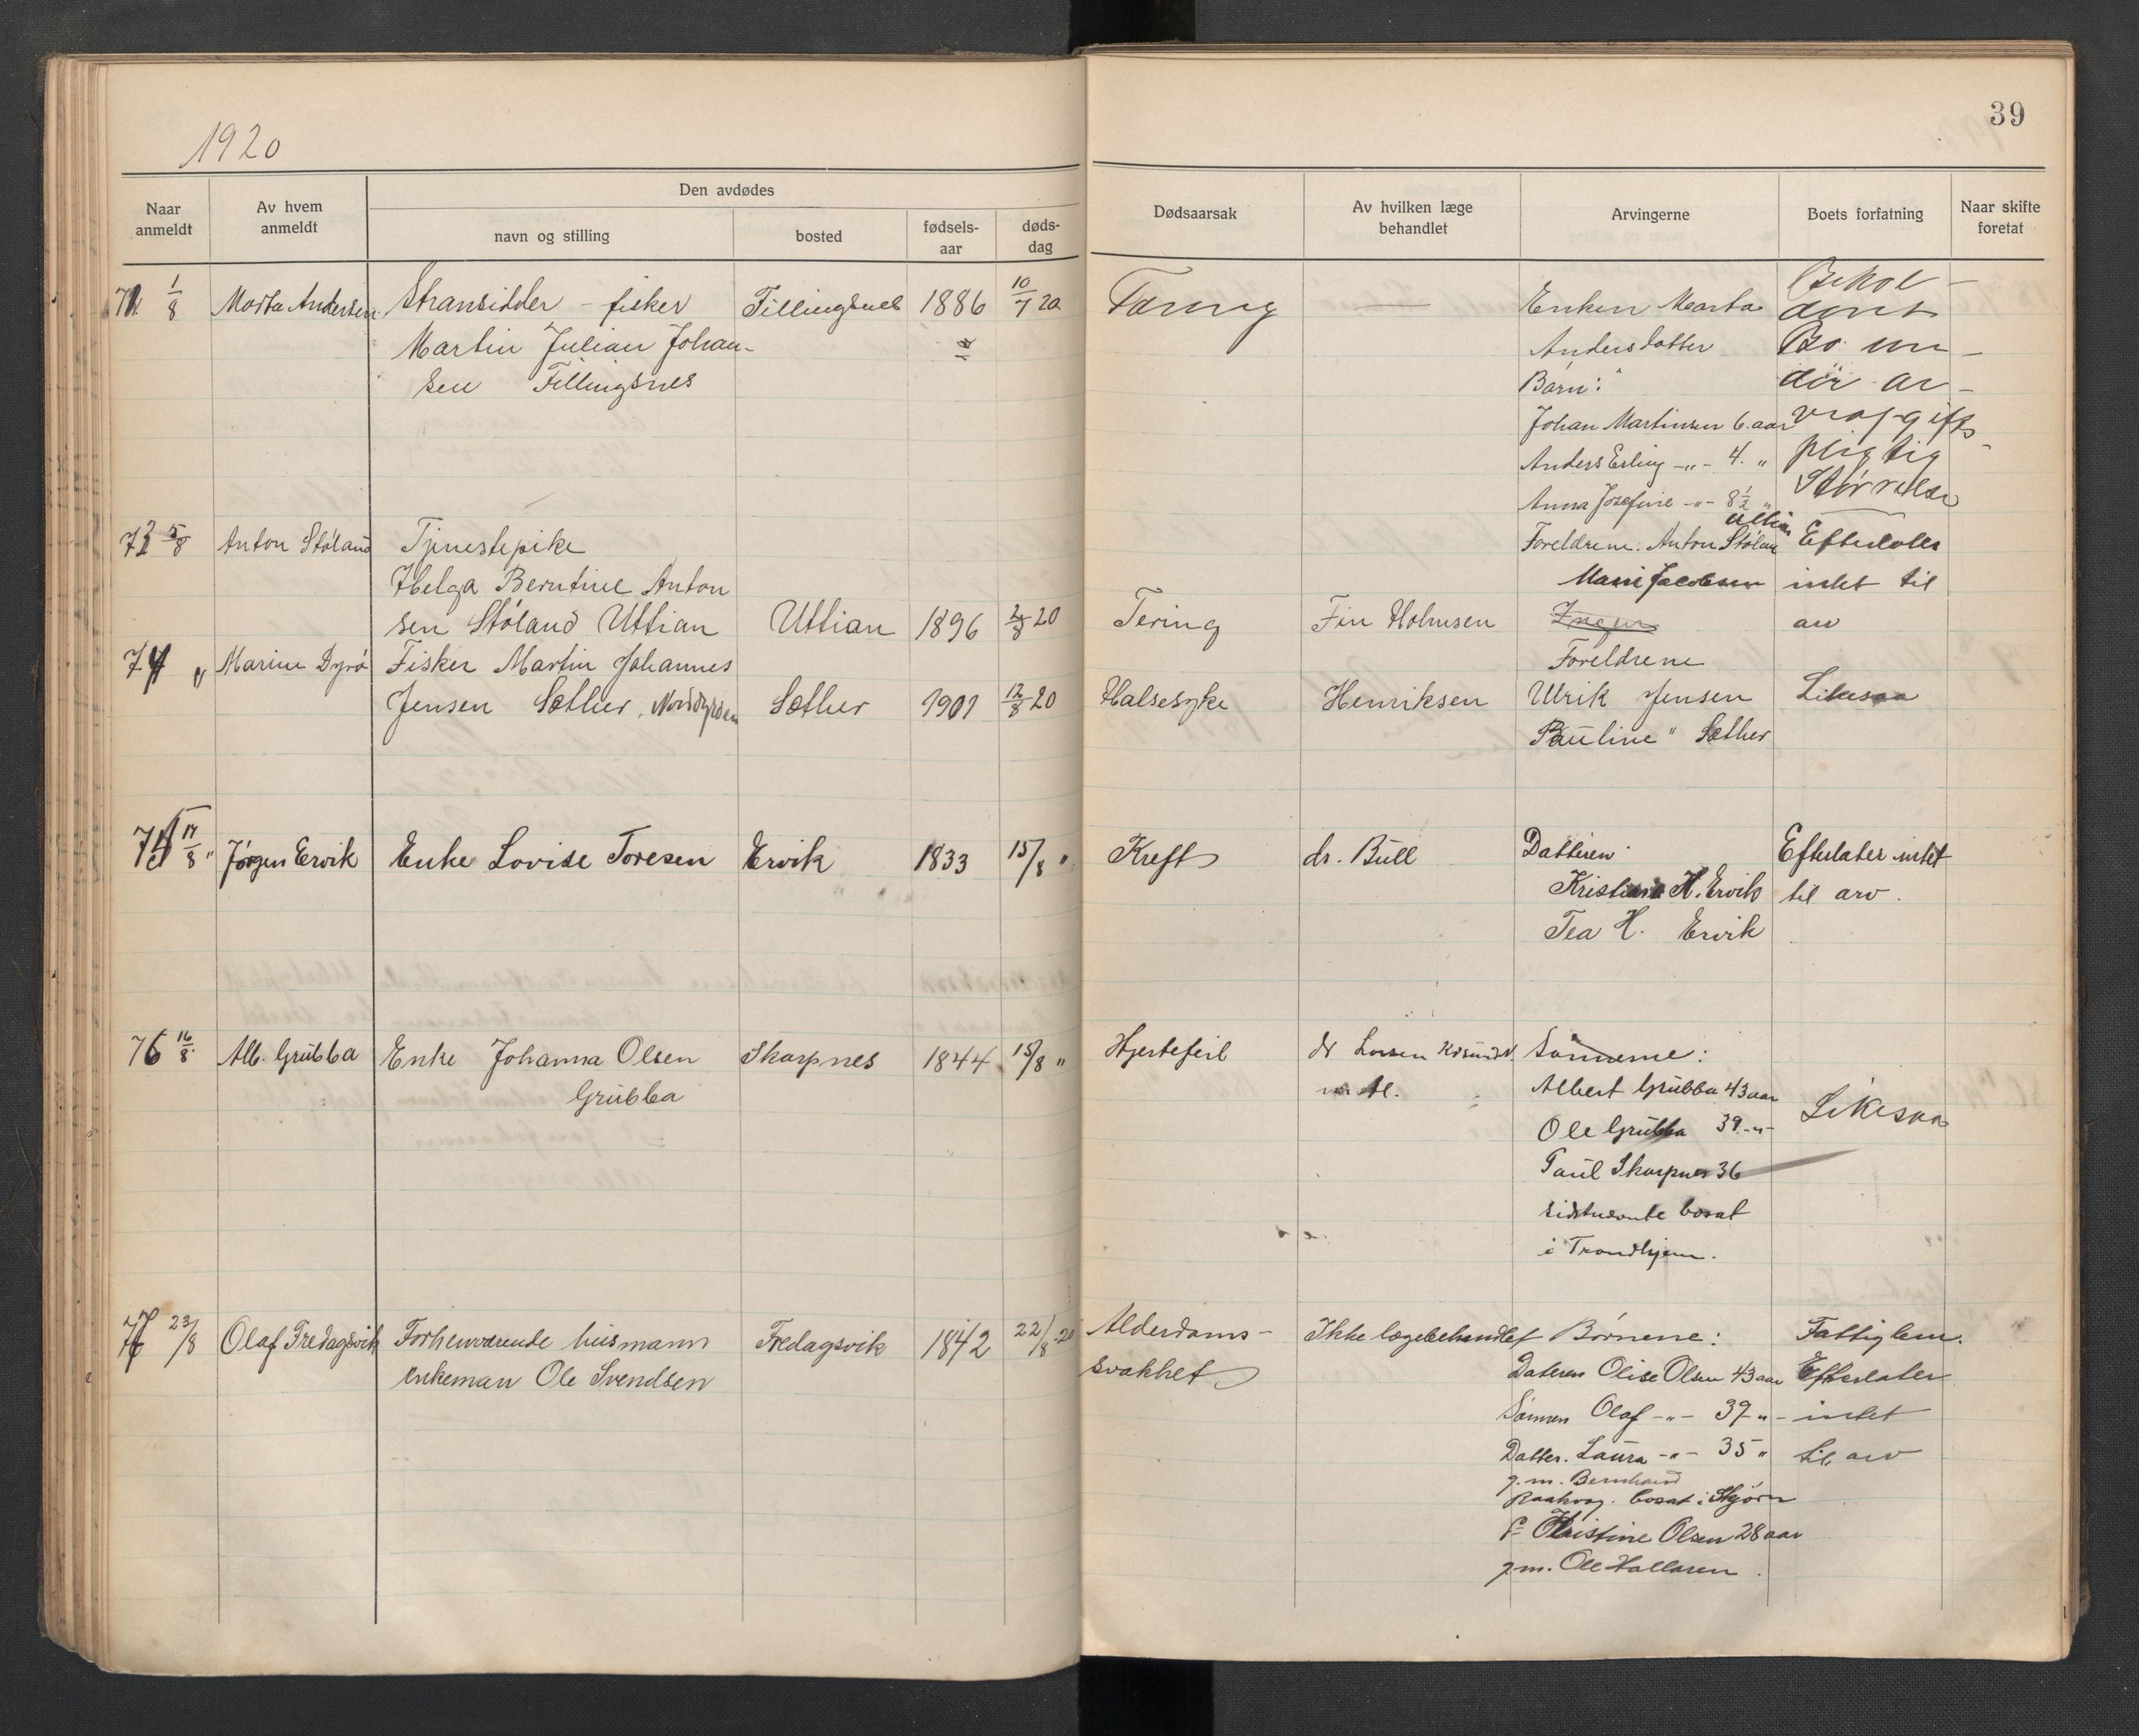 1920
39
Naar anmeldt
Av hvem anmeldt
Den avdødes
navn og stilling
bosted
fødsels-aar
døds-dag
Dødsaarsak
Av hvilken læge behandlet
Arvingerne
Boets forfatning
Naar skifte foretat
1/8 Marta Andersen Stransidder - fisker Fillingsnes 1886 10/7 20
Martin Julian Johan-
sen Fillingsnes
Tæring — Enken Marta
Andersdatter
Barn:
Johan Martinsen 6. aar
Anders Erling -"- 4. "
Anna Josefine -"- 8½ "
Behol-
dent
Bo un-
der ar-
veavgifts
pligtig
Størrelse
73 5/8 Anton Støland Tjenestepike
Helga Berntine Anton
sen Støland Uttian Uttian 1896 2/8 20
Tering Fin Holmsen
Foreldrene: Anton Støland Uttian
Marie Jacobsen
Efterlater
intet til
arv
74 " Marius Dyrø Fisker Martin Johannes
Jensen Sæther, Norddyrøen Sæther 1901 12/8 20
Halsesyke Henriksen
Foreldrene
Ulrik Jensen
Pauline " Sæther
Likesaa
75 14/8 " Jørgen Ervik Enke Lovise Toresen Ervik 1833 15/8 "
Kreft dr. Bull Datteren
Kristiana H. Ervik
Tea H. Ervik
Efterlater intet
til arv.
76 16/8 Alb. Grubba Enke Johanna Olsen Skarpnes 1844 15/8 "
Grubba
Hjertefeil dr Larsen Krsund N.
Sønnerne:
Albert Grubba 43 aar
Ole Grubba 39 -"-
Paul Skarpnes 36
sidstnevnte bosat
i Trondhjem.
Likesaa
77 23/8 Olaf Fredagsvik Forhenværende husmann Fredagsvik 1842 22/8-20
enkeman Ole Svendsen
Alderdoms-
svakhet
Ikke lægebehandlet Børnene:
Dateren Olise Olsen 43 aar
Sønnen Olaf -"- 39 -"-
Datter. Laura -"- 35 "
g.m. Bernhard
Raakvag. bosat i Stjørn
Kristine Olsen 28 aar
g.m. Ole Hallaren.
Fattiglem.
Efterlater
intet
til arv